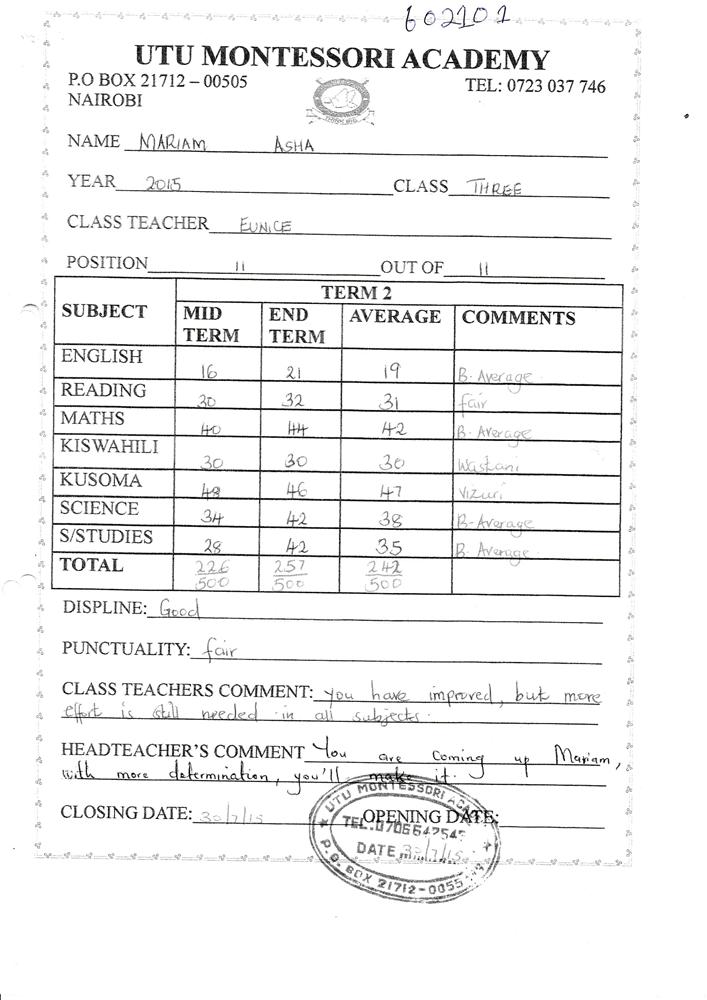 602101
UTU MONTESSORI ACADEMY
P.O BOX 21712 – 00505 TEL: 0723 037 746
NAIROBI
NAME MARIAM ASHA
YEAR 2015 CLASS THREE
CLASS TEACHER EUNICE
POSITION 11 OUT OF 11
TERM 2
SUBJECT MID TERM END TERM AVERAGE COMMENTS
ENGLISH 16 21 19 B. Average
READING 30 32 31 fair
MATHS 40 44 42 B. Average
KISWAHILI 30 30 30 Wastani
KUSOMA 48 46 47 Vizuri
SCIENCE 34 42 38 B-Average
S/STUDIES 28 42 35 B. Average
TOTAL 226/500 257/500 242/500
DISPLINE: Good
PUNCTUALITY: fair
CLASS TEACHERS COMMENT: you have improved, but more
effort is still needed in all subjects.
HEADTEACHER'S COMMENT You are coming up Mariam,
with more determination, you'll make it.
CLOSING DATE: 30/7/15 OPENING DATE:
UTU MONTESSORI
TEL: 0706647545
DATE 30/7/15
P.O. BOX 21712-0055